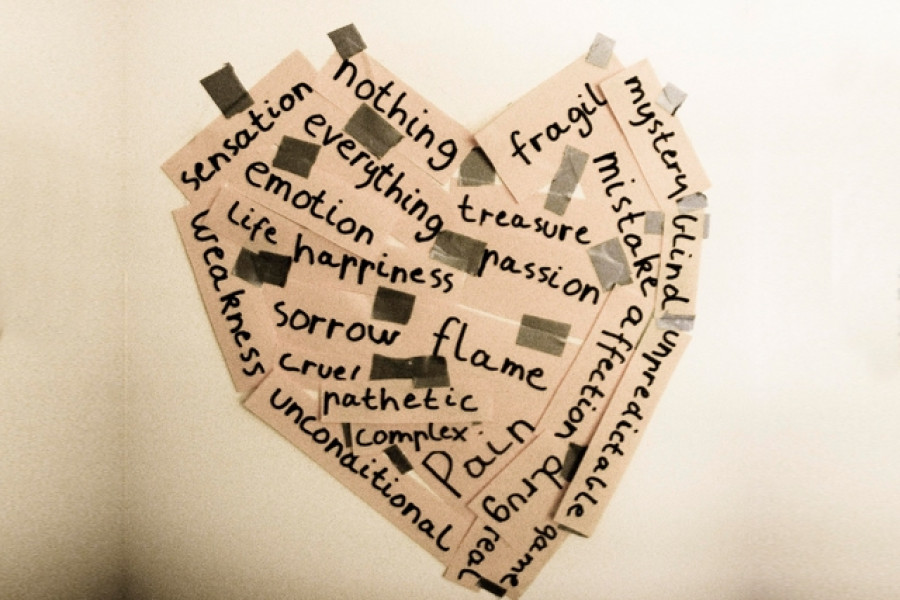 nothing
sensation
everything
fragil
mystery
emotion
treasure
mistake
life
happiness
passion
blind
weakness
sorrow
flame
affection
unredictable
cruel
pathetic
complex
pain
unconditional
drug
real
game